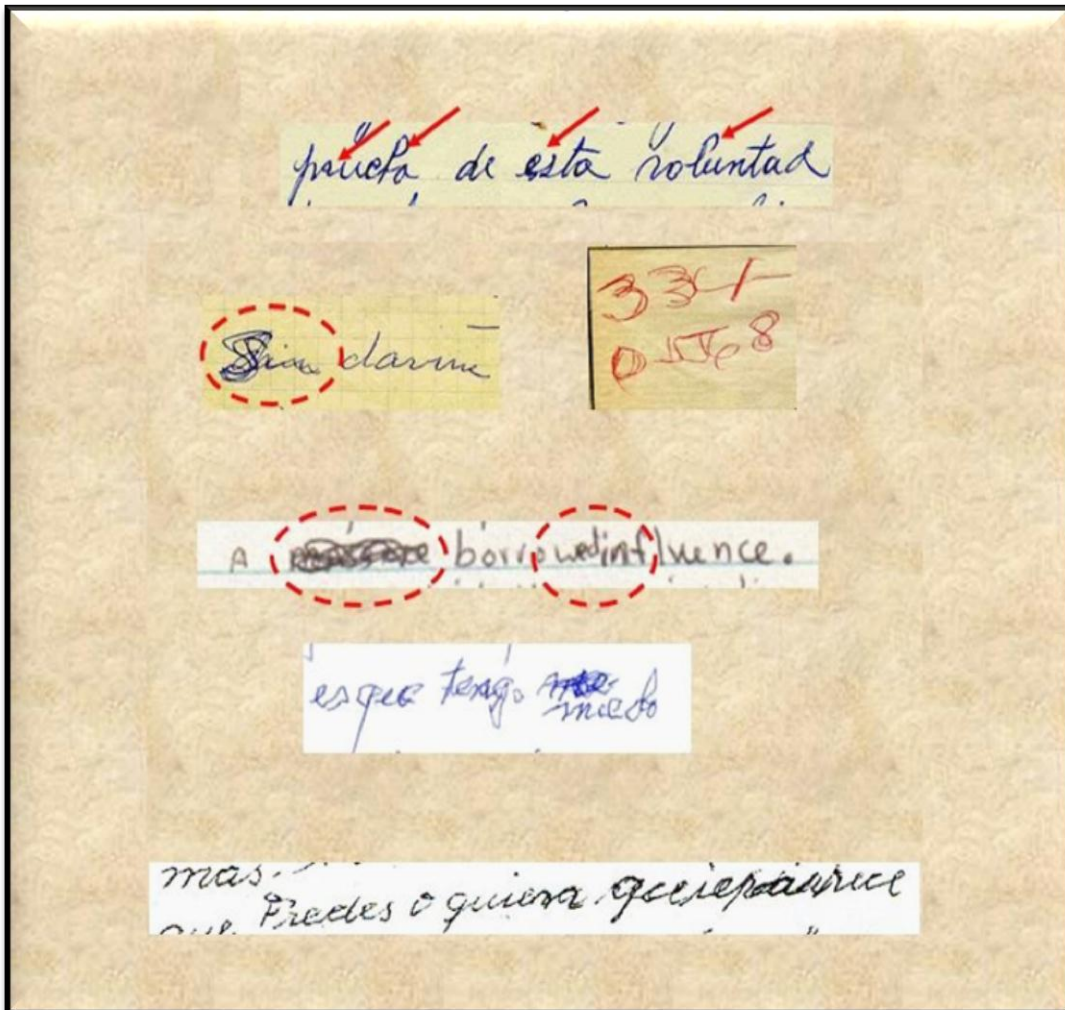 prueba de esta voluntad
Sin darme
334
05568
A borrowed influence.
es que tengo miedo
mas.
Predes o quiera
que